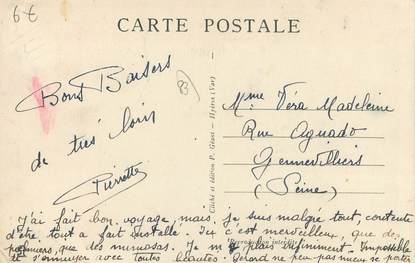 6€
CARTE POSTALE
Bons Baisers
de très loin
Pierrette
83
Mme Véra Madeleine
Rue Aguado
Gennevilliers
(Seine)
Cliché et édition P. Géant - Hyères (Var)
Reproduction interdite
J'ai fait bon voyage, mais je suis malgré tout, contente
d'être tout à fait installé. Ici c'est merveilleux, que des
palmiers, que des mimosas. Je m'y plais infiniment. Impossible
de s'ennuyer avec toutes beautés. Gérard ne peu pas mieux se porter